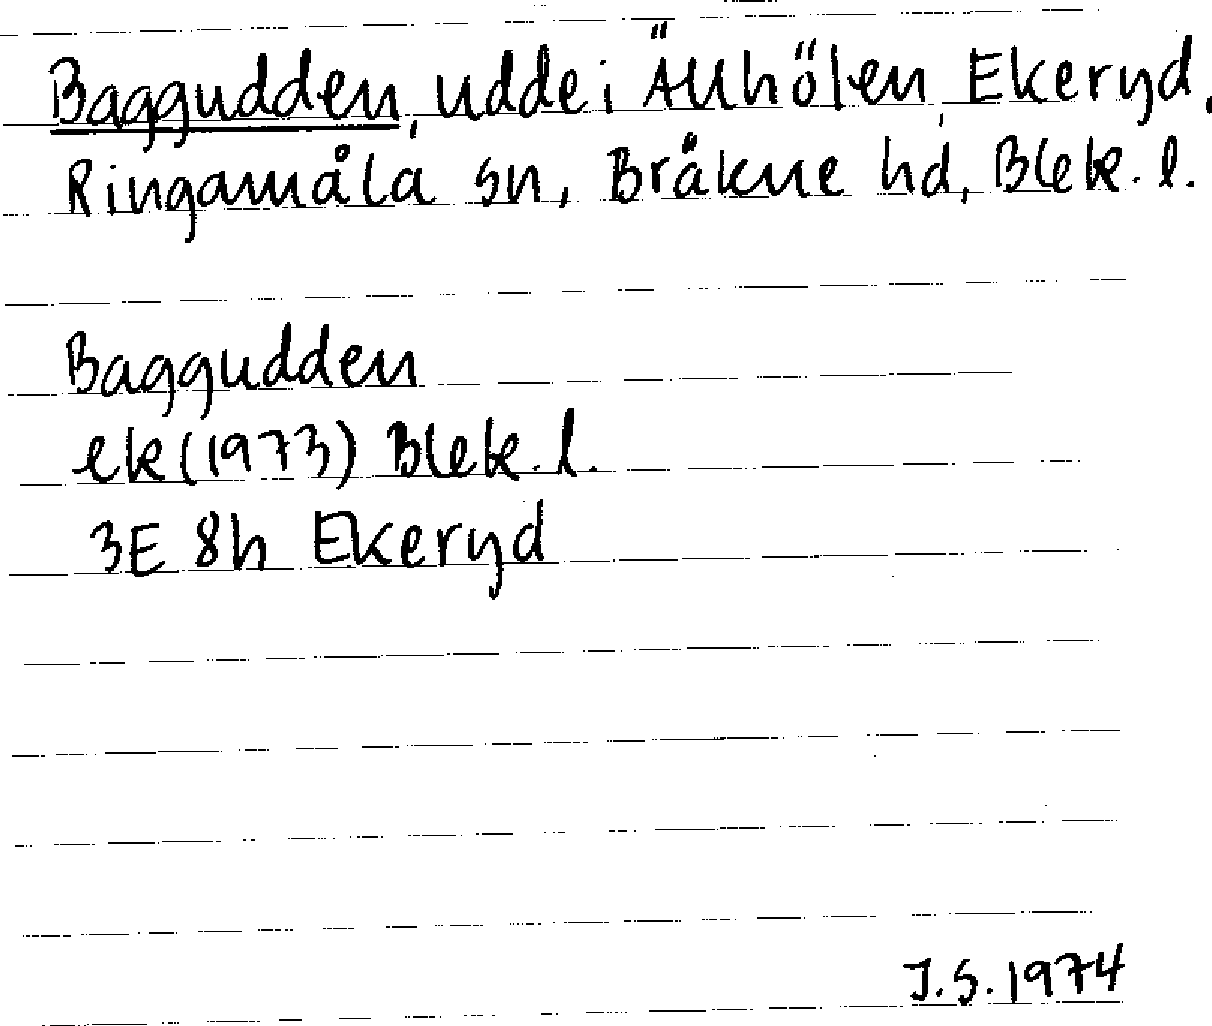 Baggudden, udde i Ällhölen, Ekeryd,
Ringamåla sn, Bräkne hd, Blek. l.
Baggudden
ek (1973) Blek. l.
3E 8h Ekeryd
J.S. 1974